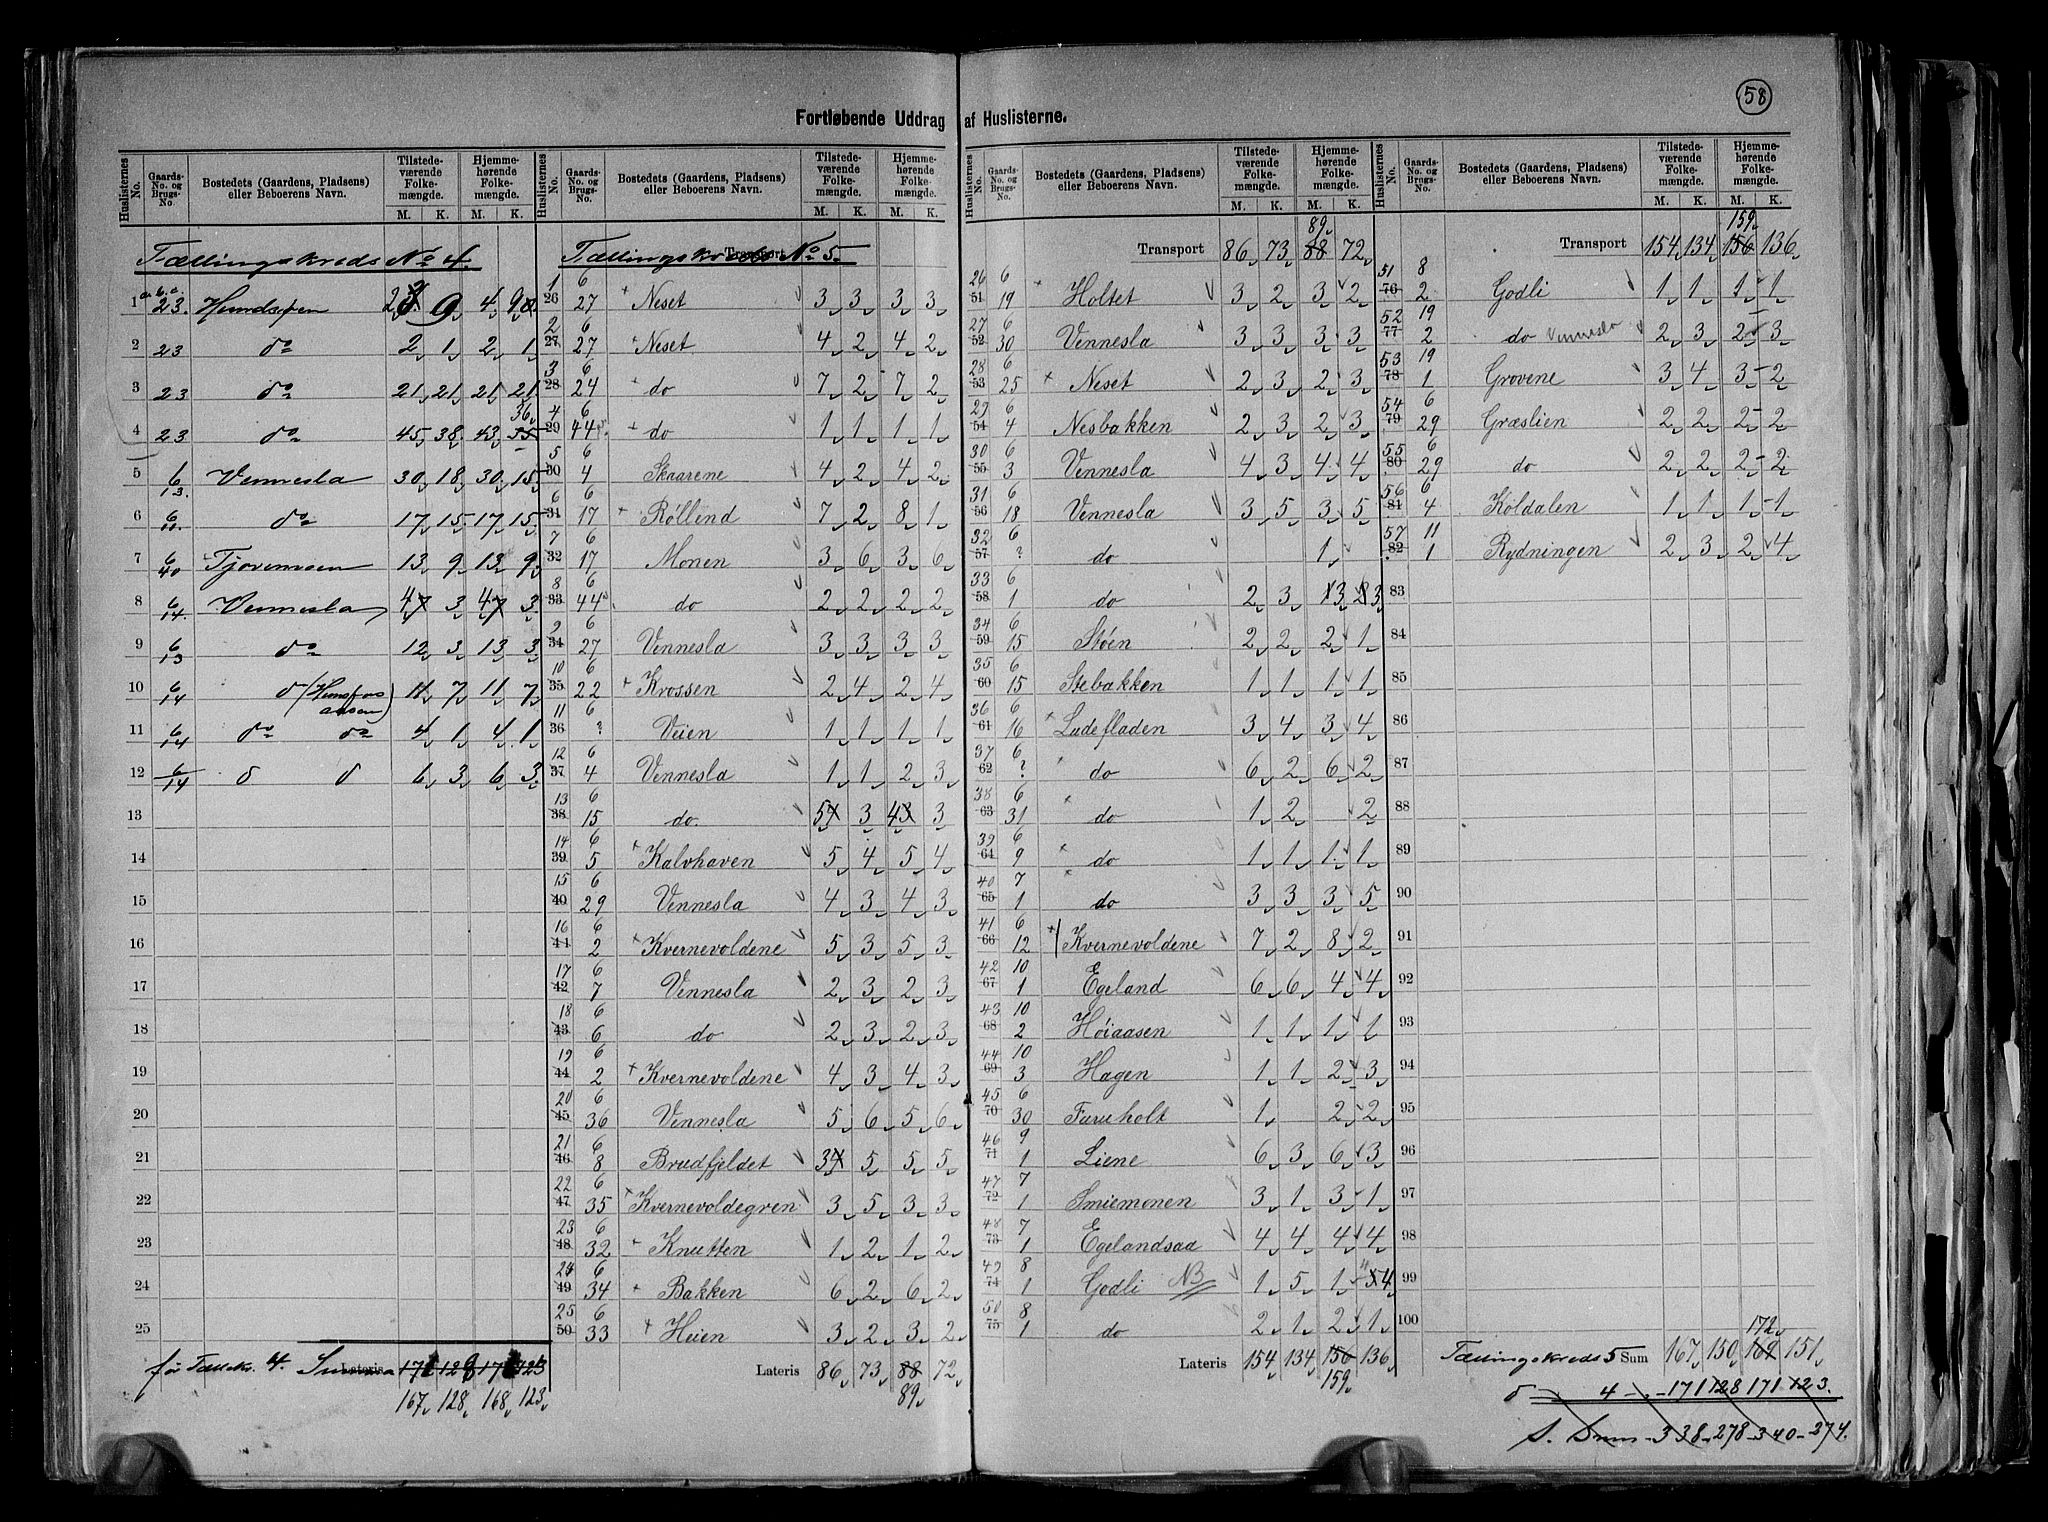 58
Fortløbende Uddrag af Huslisterne.
Huslisternes No. Gaards-No. og Brugs-No. Bostedets (Gaardens, Pladsens) eller Beboerens Navn. Tilstedeværende Folkemængde. M. K. Hjemmehørende Folkemængde. M. K.
Tællingskreds No 4.
1 23. Hundsøen 9 4 9
2 23 do 2 1 2 1
3 23 do 21 21 21 21
4 23 do 45 38 43 36
5 6/13. Vennesla 30 18 30 15
6 do 17 15 17 15
7 6/40 13 9 13 9
8 6/14. Vennesla 4 3 4 3
9 6/13 do 12 3 13 3
10 6/14 d (Hunsfos aasen) 11 7 11 7
11 6/14 do do 4 1 4 1
12 6/14 d d 6 3 6 3
13
14
15
16
17
18
19
20
21
22
23
24
25
for Tællkr. 4. Summa Lateris
167 128 168 123
Huslisternes No. Gaards-No. og Brugs-No. Bostedets (Gaardens, Pladsens) eller Beboerens Navn. Tilstedeværende Folkemængde. M. K. Hjemmehørende Folkemængde. M. K.
Tællingskreds No 5. Transport
1 26 6 27 + Neset 3 3 3 3
2 27 6 27 + Neset 4 2 4 2
3 28 6 24 + do 7 2 7 2
4 29 6 44 + do 1 1 1 1
5 30 6 4 Skaarene 4 2 4 2
6 31 6 17 + Røllend 7 2 8 1
7 32 6 17 Monen 3 6 3 6
8 33 6 44 do 2 2 2 2
9 34 6 27 Vennesla 3 3 3 3
10 35 6 22 + Krossen 2 4 2 4
11 36 6 ? Veien 1 1 1 1
12 37 6 4 Vennesla 1 1 2 3
13 38 6 15 do. 5 3 4 3
14 39 6 5 + Kalvhaven 5 4 5 4
15 40 6 29 Vennesla 4 3 4 3
16 41 6 2 + Kvernevoldene 5 3 5 3
17 42 6 7 Vennesla 2 3 2 3
18 43 6 6 do 2 3 2 3
19 44 6 2 + Kvernevoldene 4 3 4 3
20 45 6 36 Vennesla 5 6 5 6
21 46 6 8 Brudfjeldet 3 5 5 5
22 47 6 35 + Kvernevoldegren 3 5 3 3
23 48 6 32 + Knutten 1 2 1 2
24 49 6 34 + Bakken 6 2 6 2
25 50 6 33 + Heien 3 2 3 2
Lateris 86 73 88 72
89
Huslisternes No. Gaards-No. og Brugs-No. Bostedets (Gaardens, Pladsens) eller Beboerens Navn. Tilstedeværende Folkemængde. M. K. Hjemmehørende Folkemængde. M. K.
89
Transport 86 73 88 72
26 51 6 19 + Holtet 3 2 3 2
27 52 6 30 Vennesla 3 3 3 3
28 53 6 25 + Neset 2 3 2 3
29 54 6 4 Nesbakken 2 3 2 3
30 55 6 3 Vennesla 4 3 4 4
31 56 6 18 Vennesla 3 5 3 5
32 57 6 ? do 1
33 58 6 1 do 2 3 3 3
34 59 6 15 Støen 2 2 2 1
35 60 6 15 Stebakken 1 1 1 1
36 61 6 16 + Ladefladen 3 4 3 4
37 62 6 ? do 6 2 6 2
38 63 6 31 do 1 2 2
39 64 6 9 do 1 1 1 1
40 65 7 1 do 3 3 3 5
41 66 6 12 + Kvernevoldene 7 2 8 2
42 67 10 1 Egeland 6 6 4 4
43 68 10 2 Høiaasen 1 1 1 1
44 69 10 3 Hagen 1 1 2 3
45 70 6 30 Furuholt 1 2 2
46 71 9 1 Liene 6 3 6 3
47 72 7 1 Smiemonen 3 1 3 1
48 73 7 1 Egelandsaa 4 4 4 4
49 74 8 1 Godli NB 1 5 1 4
50 75 8 1 do 2 1 2 1
Lateris 154 134 156 136
159
Huslisternes No. Gaards-No. og Brugs-No. Bostedets (Gaardens, Pladsens) eller Beboerens Navn. Tilstedeværende Folkemængde. M. K. Hjemmehørende Folkemængde. M. K.
159
Transport 154 134 156 136
51 76 8 2 Godli 1 1 1 1
52 77 19 2 do Vennesla 2 3 2 3
53 78 19 1 Grovene 3 4 3 2
54 79 6 29 Græslien 2 2 2 2
55 80 6 29 do 2 2 2 2
56 81 6 4 Koldalen 1 1 1 1
57 82 11 1 Rydningen 2 3 2 4
83
84
85
86
87
88
89
90
91
92
93
94
95
96
97
98
99
100
172
Tællingskreds 5 Sum 167 150 169 151
d 4 - 171 128 171 123.
S. Sum - 338 - 278 - 340 - 274.